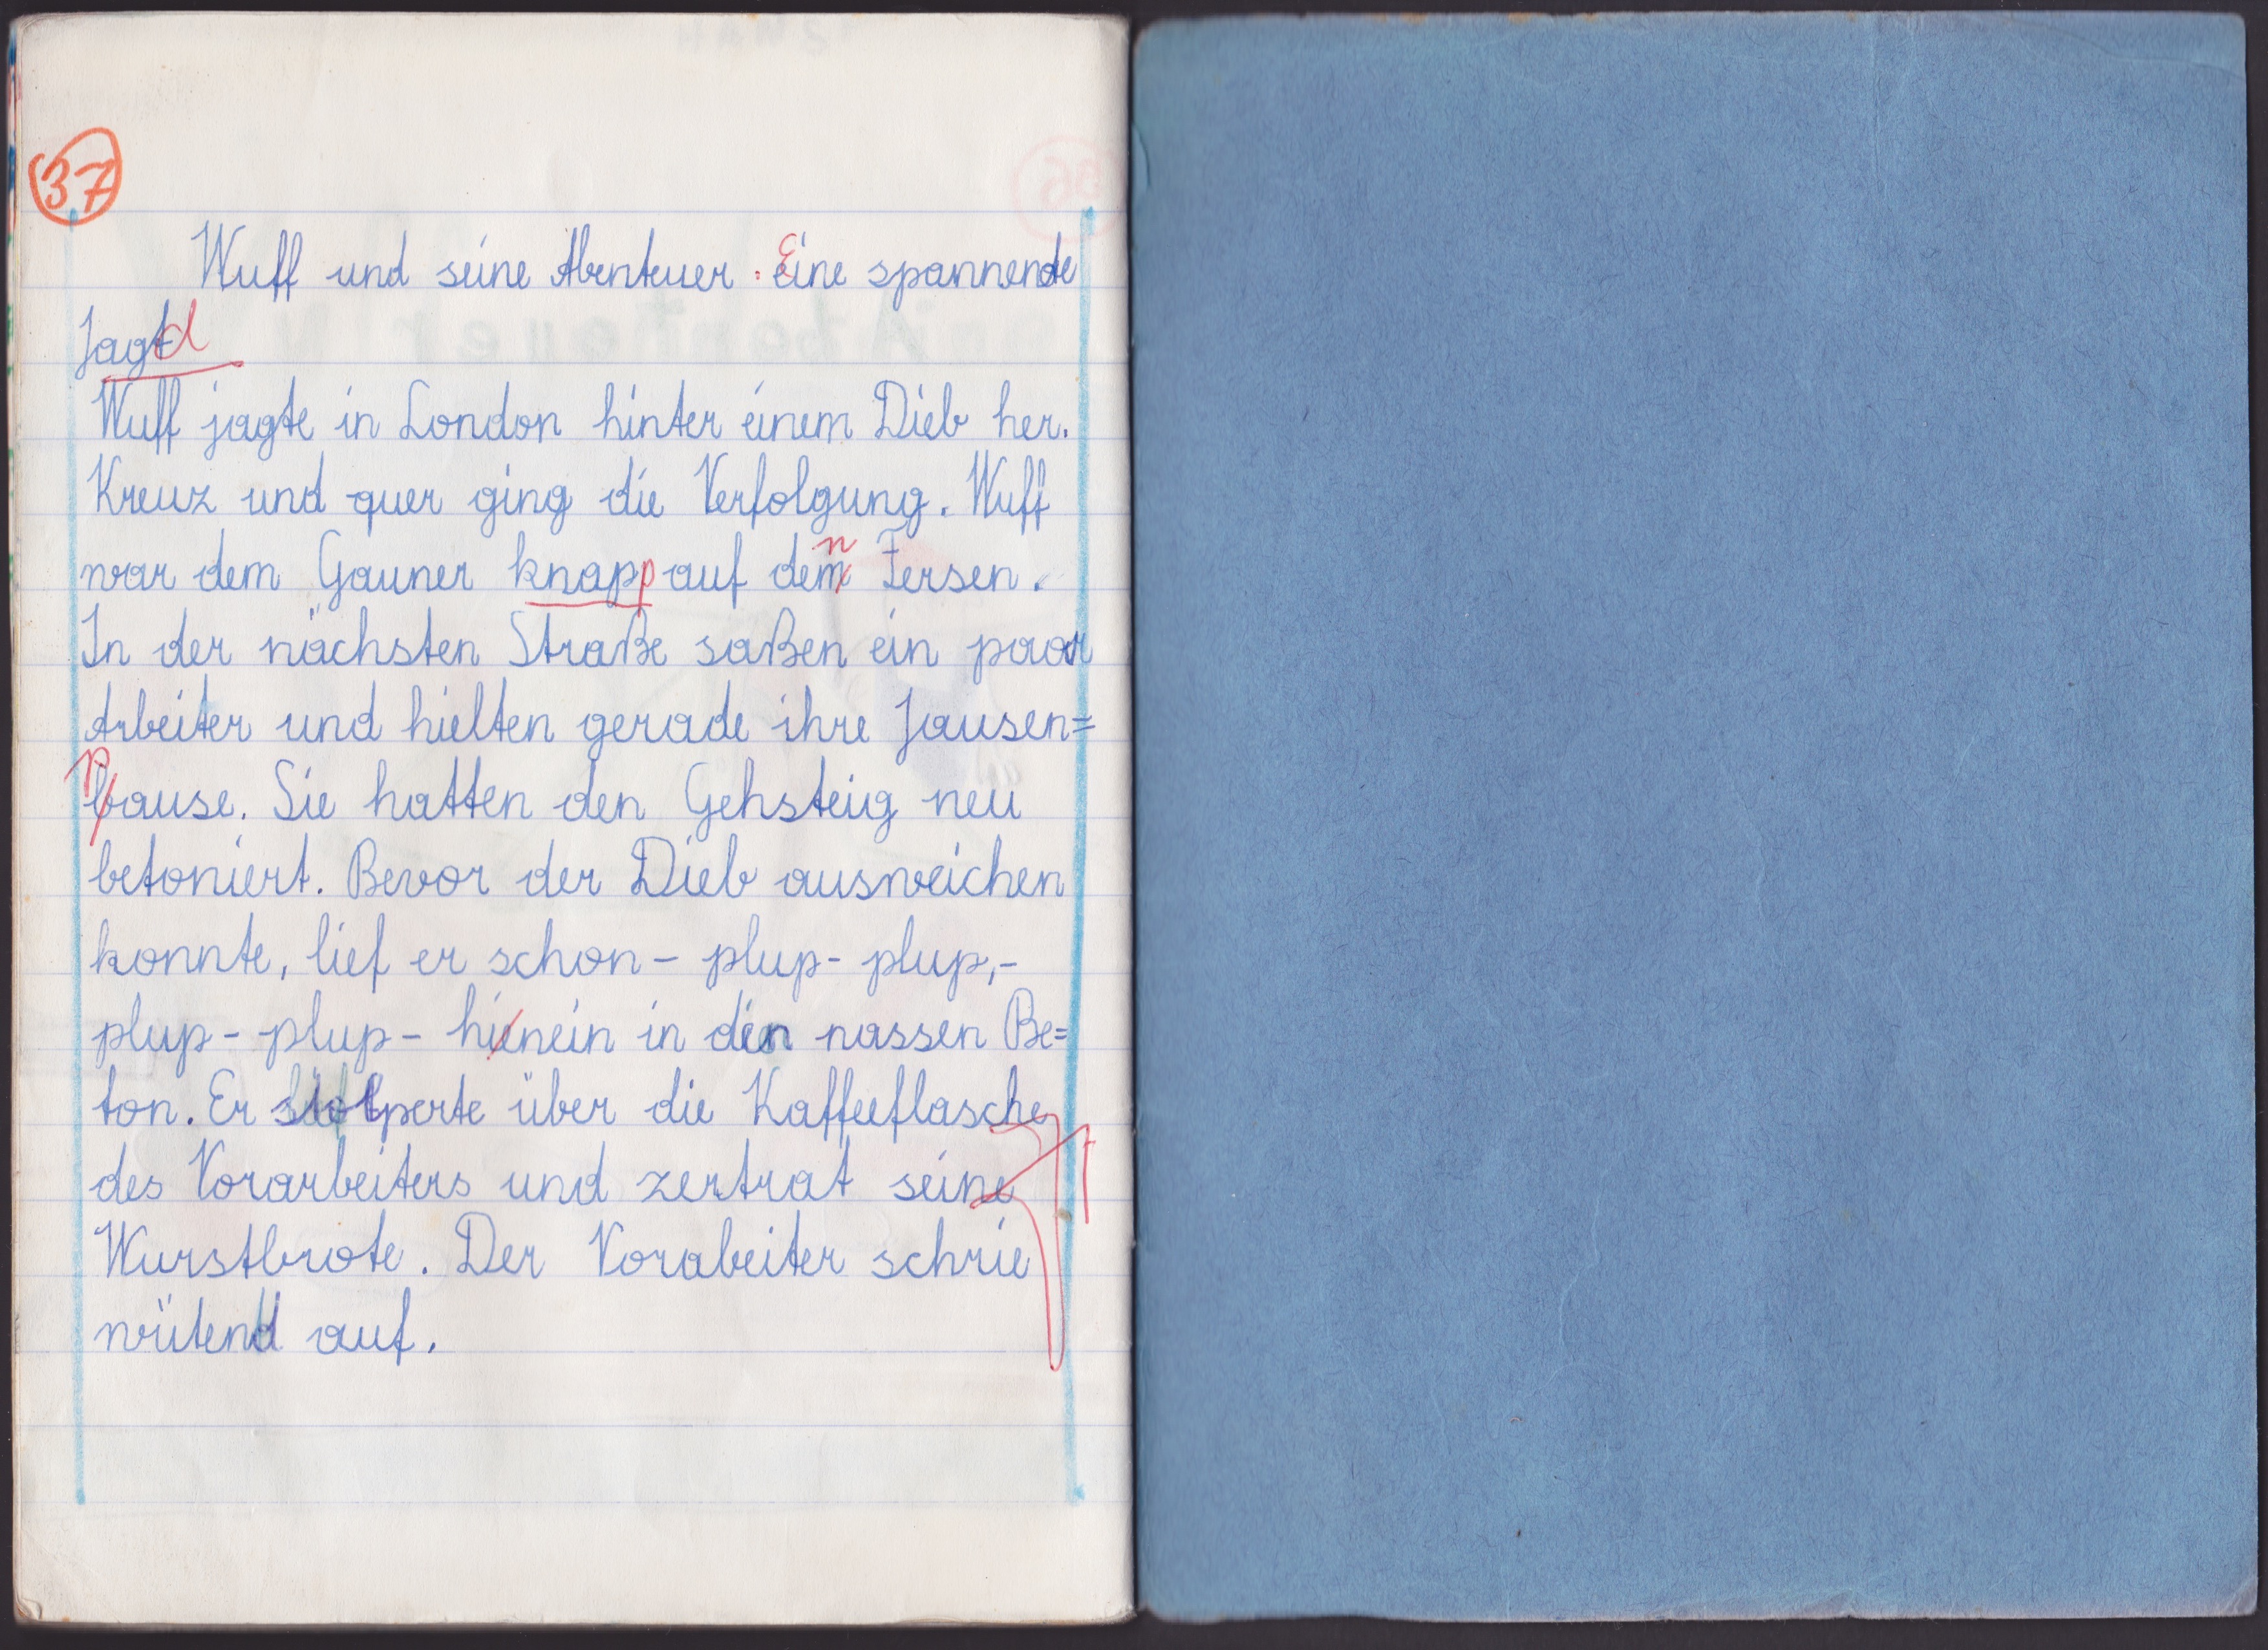 37
Wuff und seine Abenteuer : Eine spannende
Jagd
Wuff jagte in London hinter einem Dieb her.
Kreuz und quer ging die Verfolgung. Wuff
war dem Gauner knapp auf den Fersen.
In der nächsten Straße saßen ein paar
Arbeiter und hielten gerade ihre Jausen=
pause. Sie hatten den Gehsteig neu
betoniert. Bevor der Dieb ausweichen
konnte, lief er schon - plup- plup,-
plup - plup - hinein in den nassen Be=
ton. Er stolperte über die Kaffeeflasche
des Vorarbeiters und zertrat seine
Wurstbrote. Der Vorabeiter schrie
wütend auf.